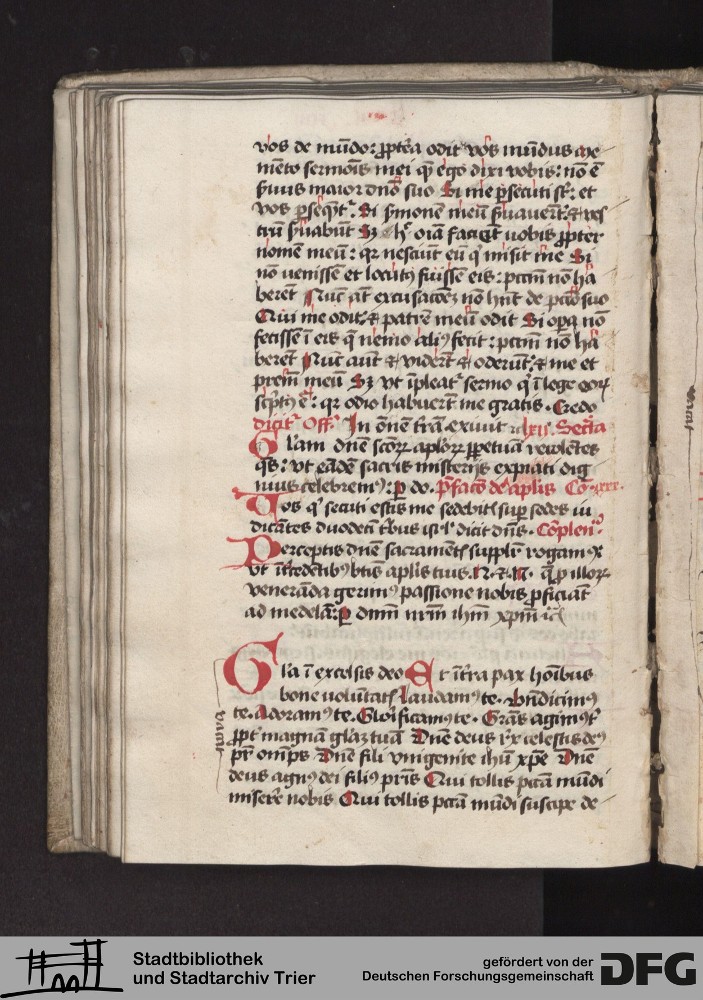 vos de mūdo: ꝓpterea odit vos mūdus Me
mēto sermonis mei quē ego dixi vobis: nō ē
ẜuus maior dnō suo Si me ꝑsecuti st: et
vos ꝑsequēt. Si ẜmonē meū ẜuauert: & ves
trū ẜuabunt Sz hec oīa faciēt uobis ꝓpter
nomē meū: qr nesciūt eū qͥ misit me Si
nō uenissē et locutꝰ fuissē eis: pctm̄ nō ha
berēt Nūc aūt excusacōez nō hnt de pctō suo
Qui me odit: & patrē meū odit Si opa nō
fecissē ī eis q̄ nemo aliꝰ fecit: pctm̄ nō ha
berēt Nūc aūt & viderūt & oderūt: & me et
prem̄ meū Sz vt īpleat sermo qͥ ī lege eoꝝ
scptꝰ ē: qr odio habuerūt me gratis. Credo
dicit Off. In ōnē trā exiuit Secreta
Glam dnē scōꝝ aploꝝ ꝑpetuā venerātes
qs: vt eādē sacris misterijs expiati dig
nius celebremꝰ: ꝑ do. Pfacō de aplis Cō
Vos qͥ secuti estis me sedebitis sup sedes iu
dicātes duodeci tbus isrl dicit dns. Cōplen
Perceptis dnē sacramētis supplr rogamꝰ
vt ītcedētibꝰ btis aplis tuis N. & N. que ꝓ illoꝝ
venerāda gerimꝰ passione nobis ꝓficiāt
ad medelā: ꝑ dnm̄ nrm̄ ihm̄ xpm̄
Gla ī excelsis deo Et ī tra pax hoībus
bone voluntatis Laudamꝰ te. Bndicimꝰ
te. Adoramꝰ te. Glorificamꝰ te. Gras agimꝰ t
ꝓpt magnā glaz tuā Dnē deus rex celestis deꝰ
pr omps Dnē fili vnigenite ihu xpe Dnē
deus agnꝰ dei filiꝰ pris Qui tollis pctā mūdi
miserē nobis Qui tollis pctā mūdi suscipe de
Stadtbibliothek
und Stadtarchiv Trier
gefördert von der
Deutschen Forschungsgemeinschaft
DFG